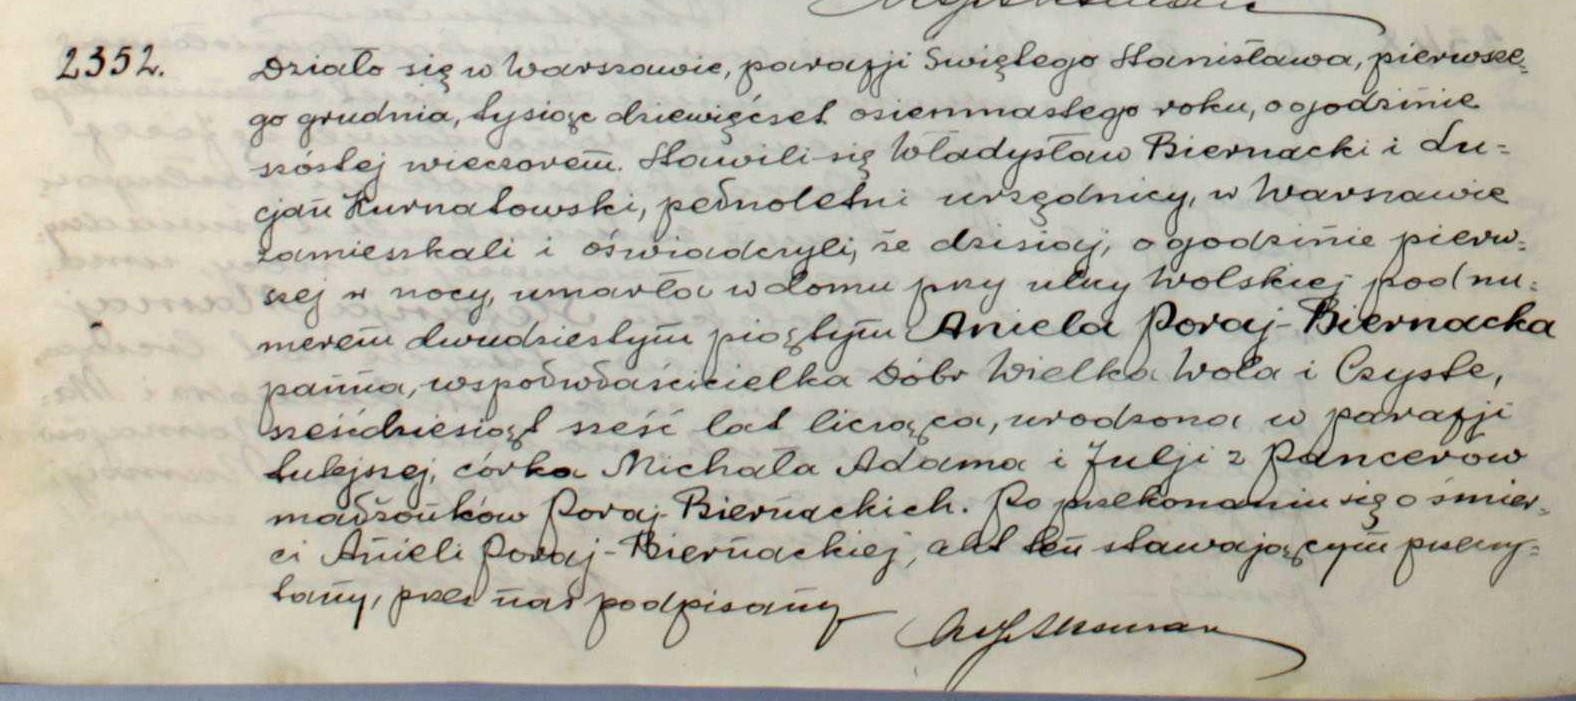 2352. Działo się w Warszawie, parafji Świętego Stanisława, pierwsze=
go grudnia, tysiąc dziewięćset osiemnastego roku, o godzinie
szóstej wieczorem. Stawili się Władysław Biernacki i Lu=
cjan Kurnatowski, pełnoletni urzędnicy, w Warszawie
zamieszkali i oświadczyli, że dzisiaj, o godzinie pierw=
szej w nocy, umarła w domu przy ulicy Wolskiej pod nu=
merem dwudziestym piątym Aniela Poraj-Biernacka
panna, współwłaścicielka Dóbr Wielka Wola i Czyste,
sześćdziesiąt sześć lat licząca, urodzona w parafji
tutejszej, córka Michała Adama i Julji z Pancerów
małżonków Poraj-Biernackich. Po przekonaniu się o śmier=
ci Anieli Poraj-Biernackiej, akt ten stawającym przeczy=
tany, przez nas podpisany